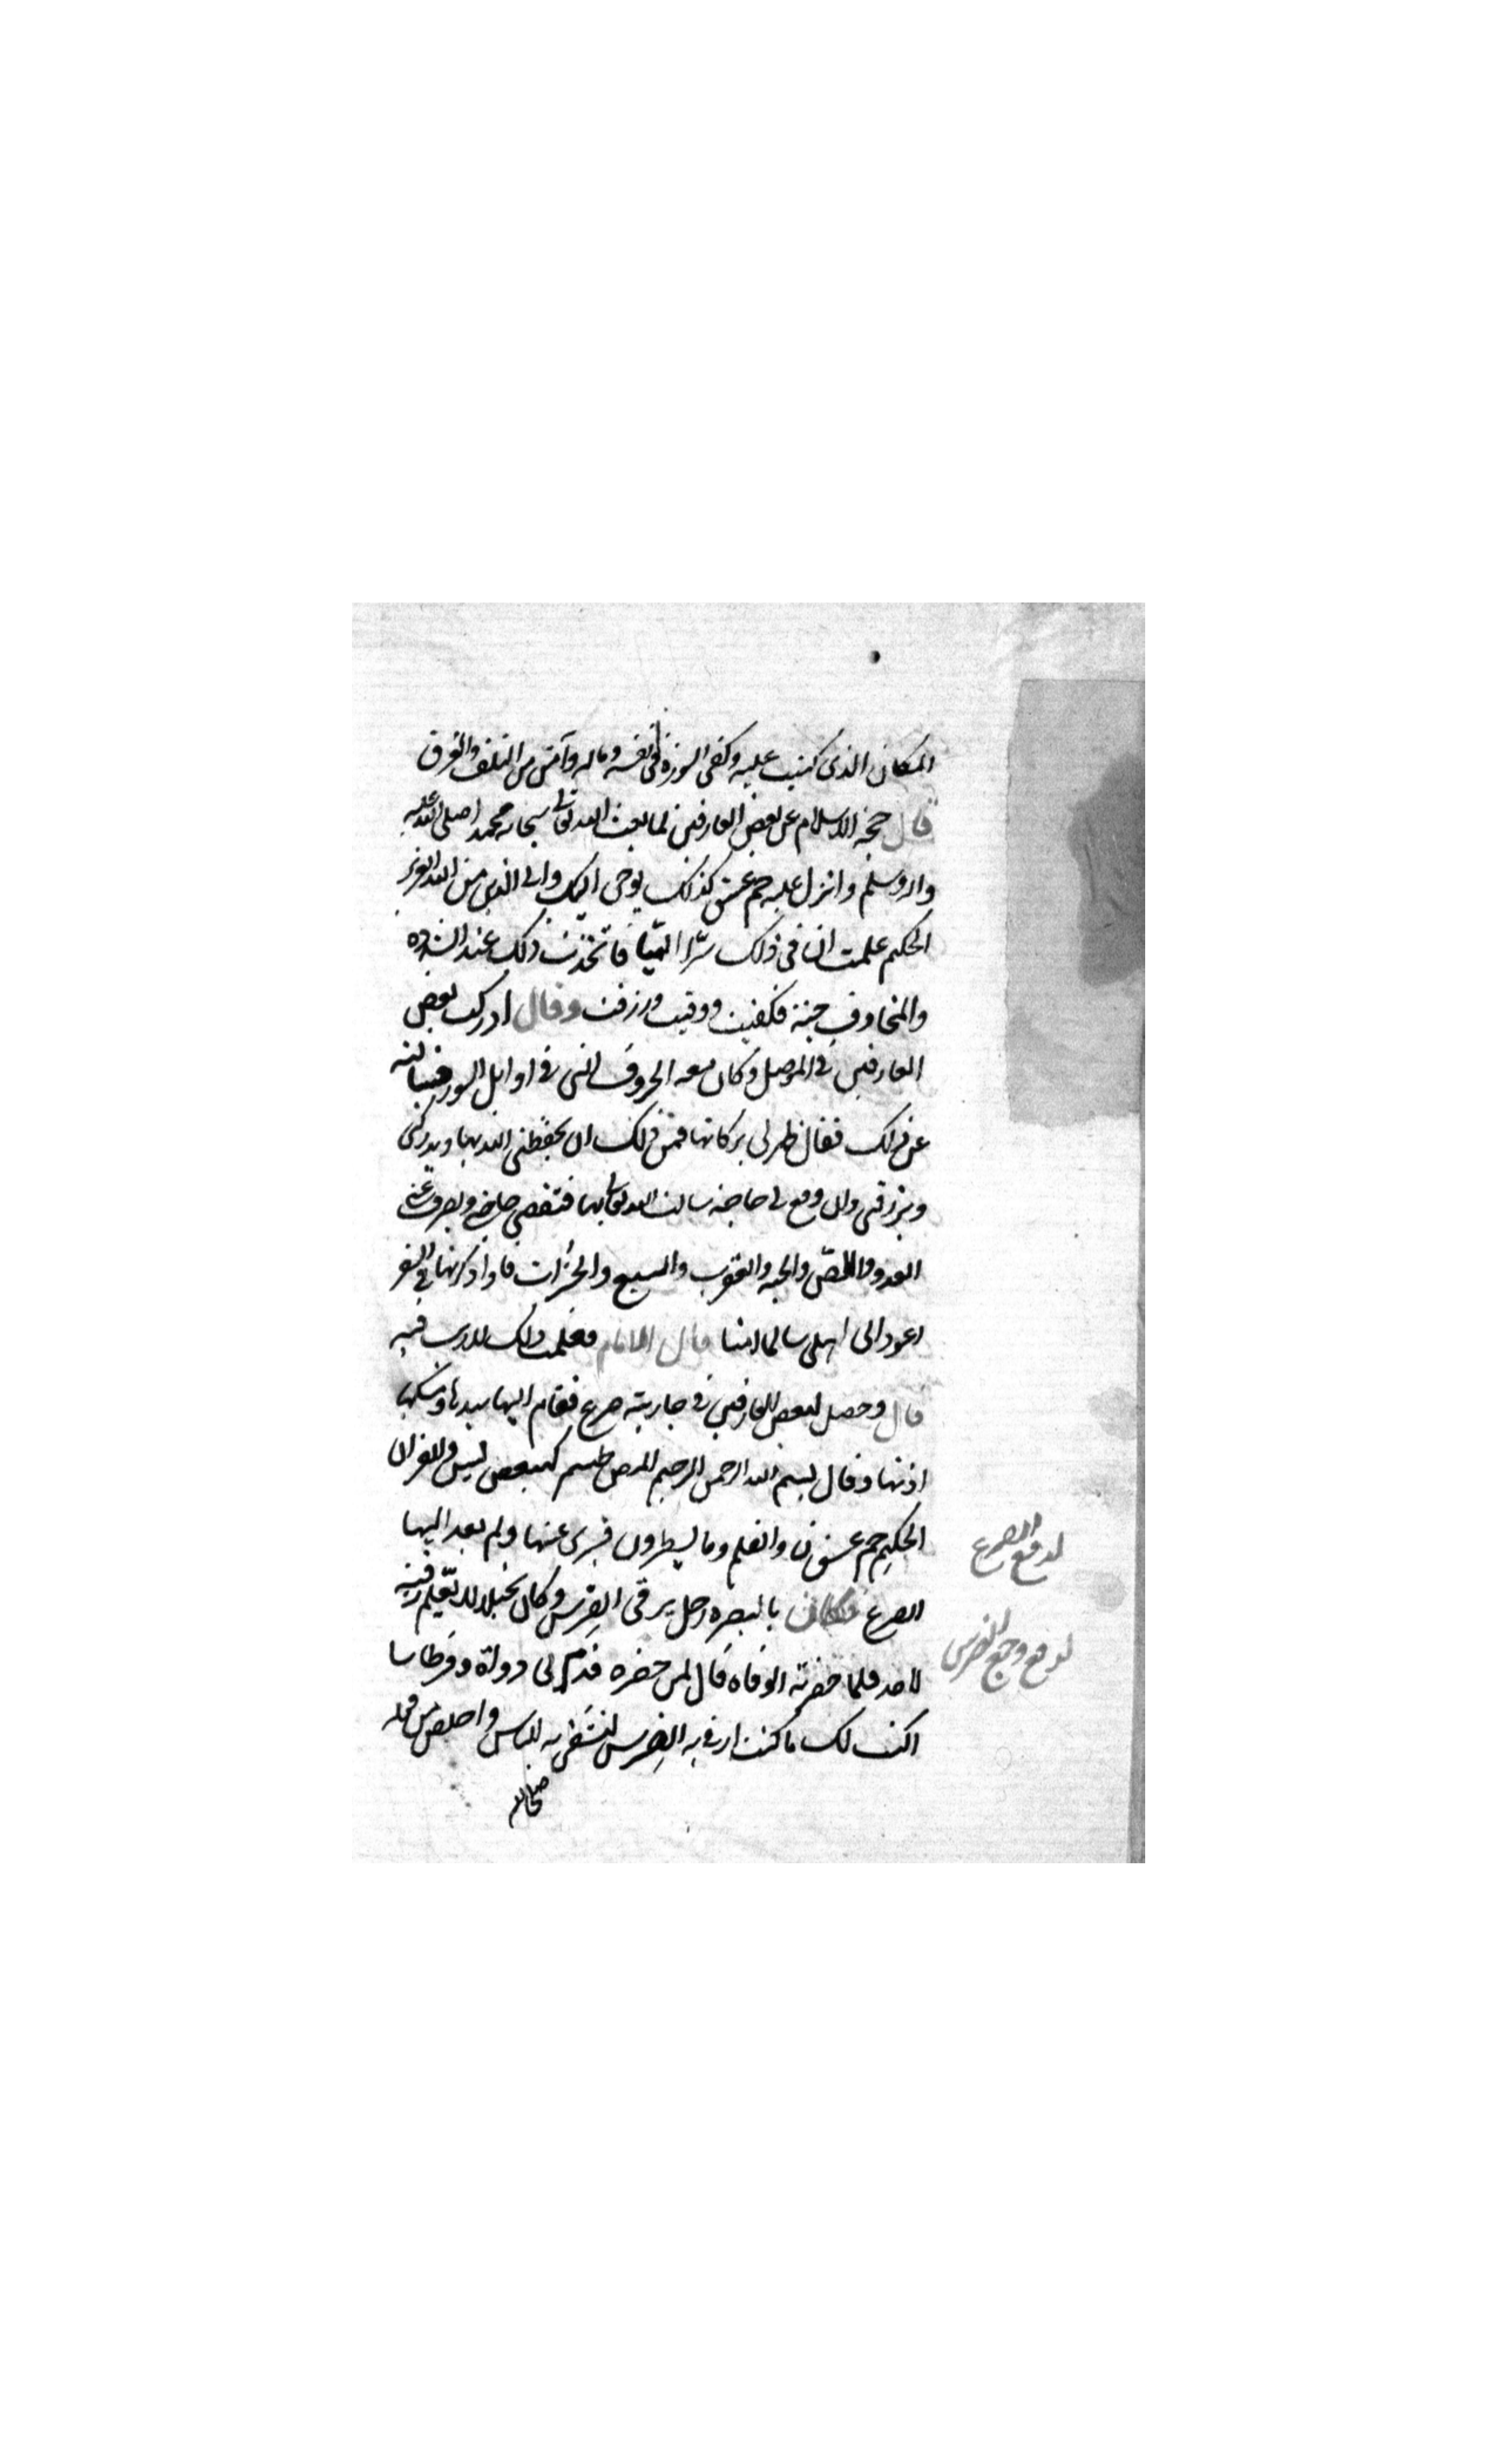 المكان الذى كتبت عليه وكفى السوء فى نفسه وماله وآمن من التلف والغرق
قال حجة الاسلام عن بعض العارفين لما بعث الله تعالى سبحانه محمدا صلى الله عليه
واله وسلم وانزل عليه حم عسق كذلك يوحى اليك والى الذين من الله العزيز
الحكيم علمت ان فى ذلك سرّا الهيّا فاتخذت ذلك عند الشدة
والمخاوف جنة فكفيت ووقيت ورزقت وقال ادركت بعض
العارفين فى الموصل وكان معه الحروف التى فى اوايل السور فسالته
عن ذلك فقال ظهر لى بركاتها فمن ذلك ان يحفظنى الله بها ويدركنى
ويرزقنى وان وقع لى حاجة سالت الله تعالى بها فتقضى حاجتى ويصرف عنى
العدو واللصّ والحية والعقرب والسبع والحشرات فاذا ذكرتها فى السفر
اعود الى اهلى سالما امنا قال الامام فعلمت ذلك للارب فيه
قال وحصل لبعض العارفين فى جاريته صرع فقام اليها سيدها ومسكها
اذنها وقال بسم الله الرحمن الرحيم المص طسم كهيعص يس والقران
الحكيم حم عسق ن والقلم وما يسطرون فسرى عنها ولم يعد اليها
الصرع وكان بالبصره رجل يرقى الضرس وكان بخيلا لا يعلم رقيته
لاحد فلما حضرته الوفاة قال لمن حضره قدم لى دواة وقرطاسا
اكتب لك ما كنت ارقى به الضرس لتشفى به الناس واخلص من
لدفع الصرع
لدفع وجع الضرس